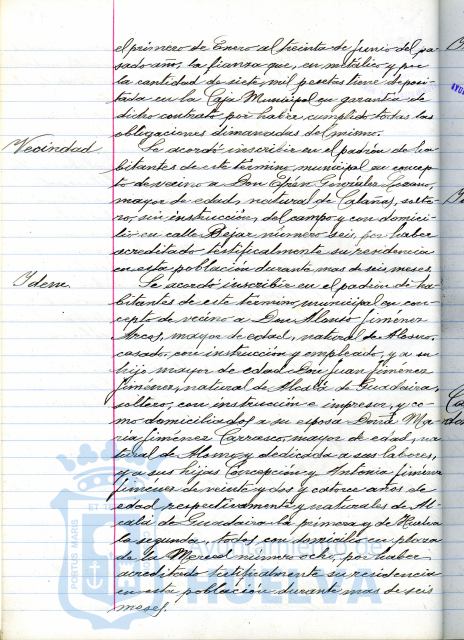 el primero de Enero al treinta de Junio del pa-
sado año, la fianza que, en metálico y por
la cantidad de siete mil pesetas tiene deposi-
tada en la Caja Municipal en garantía de
dicho contrato por haber cumplido todas las
obligaciones dimanadas del mismo.
Vecindad Se acordó inscribir en el padrón de ha-
bitantes de este término municipal en concep-
to de vecino a Don Efren González Lozano,
mayor de edad, natural de Calañas, solte-
ro, sin instrucción, del campo y con domici-
lio en calle Bejar número seis, por haber
acreditado testificalmente su residencia
en esta población durante mas de seis meses.
Idem. Se acordó inscribir en el padrón de ha-
bitantes de este término municipal en con-
cepto de vecino a Don Alonso Jiménez
Arcas, mayor de edad, natural de Alosno,
casado, con instrucción y empleado, y a su
hijo mayor de edad Don Juan Jiménez
Jiménez, natural de Alcalá de Guadaira,
soltero, con instrucción e impresor, y co-
mo domiciliados a su esposa Doña Ma-
ría Jiménez Carrasco, mayor de edad, na-
tural de Alosno y dedicada a sus labores,
y a sus hijas Concepción y Antonia Jiménez
Jiménez de veinte y dos y catorce años de
edad respectivamente y naturales de Al-
calá de Guadaira la primera y de Huelva
la segunda, todos con domicilio en plaza
de la Merced número ocho, por haber
acreditado testificalmente su residencia
en esta población durante mas de seis
meses.
PORTUS MARIS
ET TE
Ayuntamiento de
HUELVA